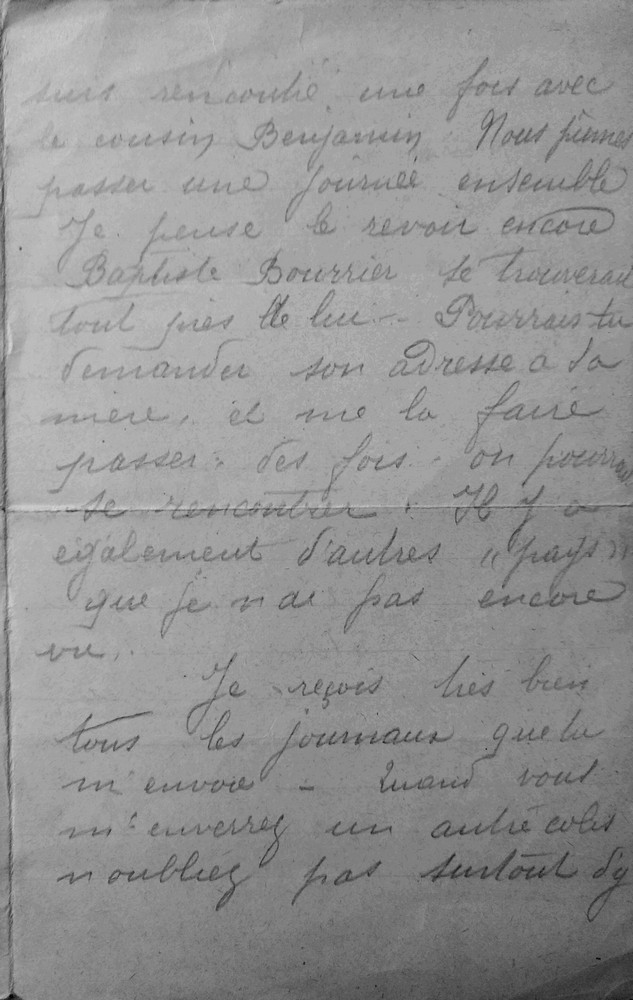 suis rencontré une fois avec
le cousin Benjamin. Nous pûmes
passer une journée ensemble
Je pense le revoir encore
Baptiste Bourrier se trouverait
tout près de lui - Pourrais tu
demander son adresse a sa
mère, et me la faire
passer. des fois. on pourrait
se rencontrer. Il y a
également d'autres "pays"
que je n'ai pas encore
vu.
Je reçois très bien
tous les journaux que tu
m'envoie - Quand vous
m'enverrez un autre colis
n'oubliez pas surtout d'y